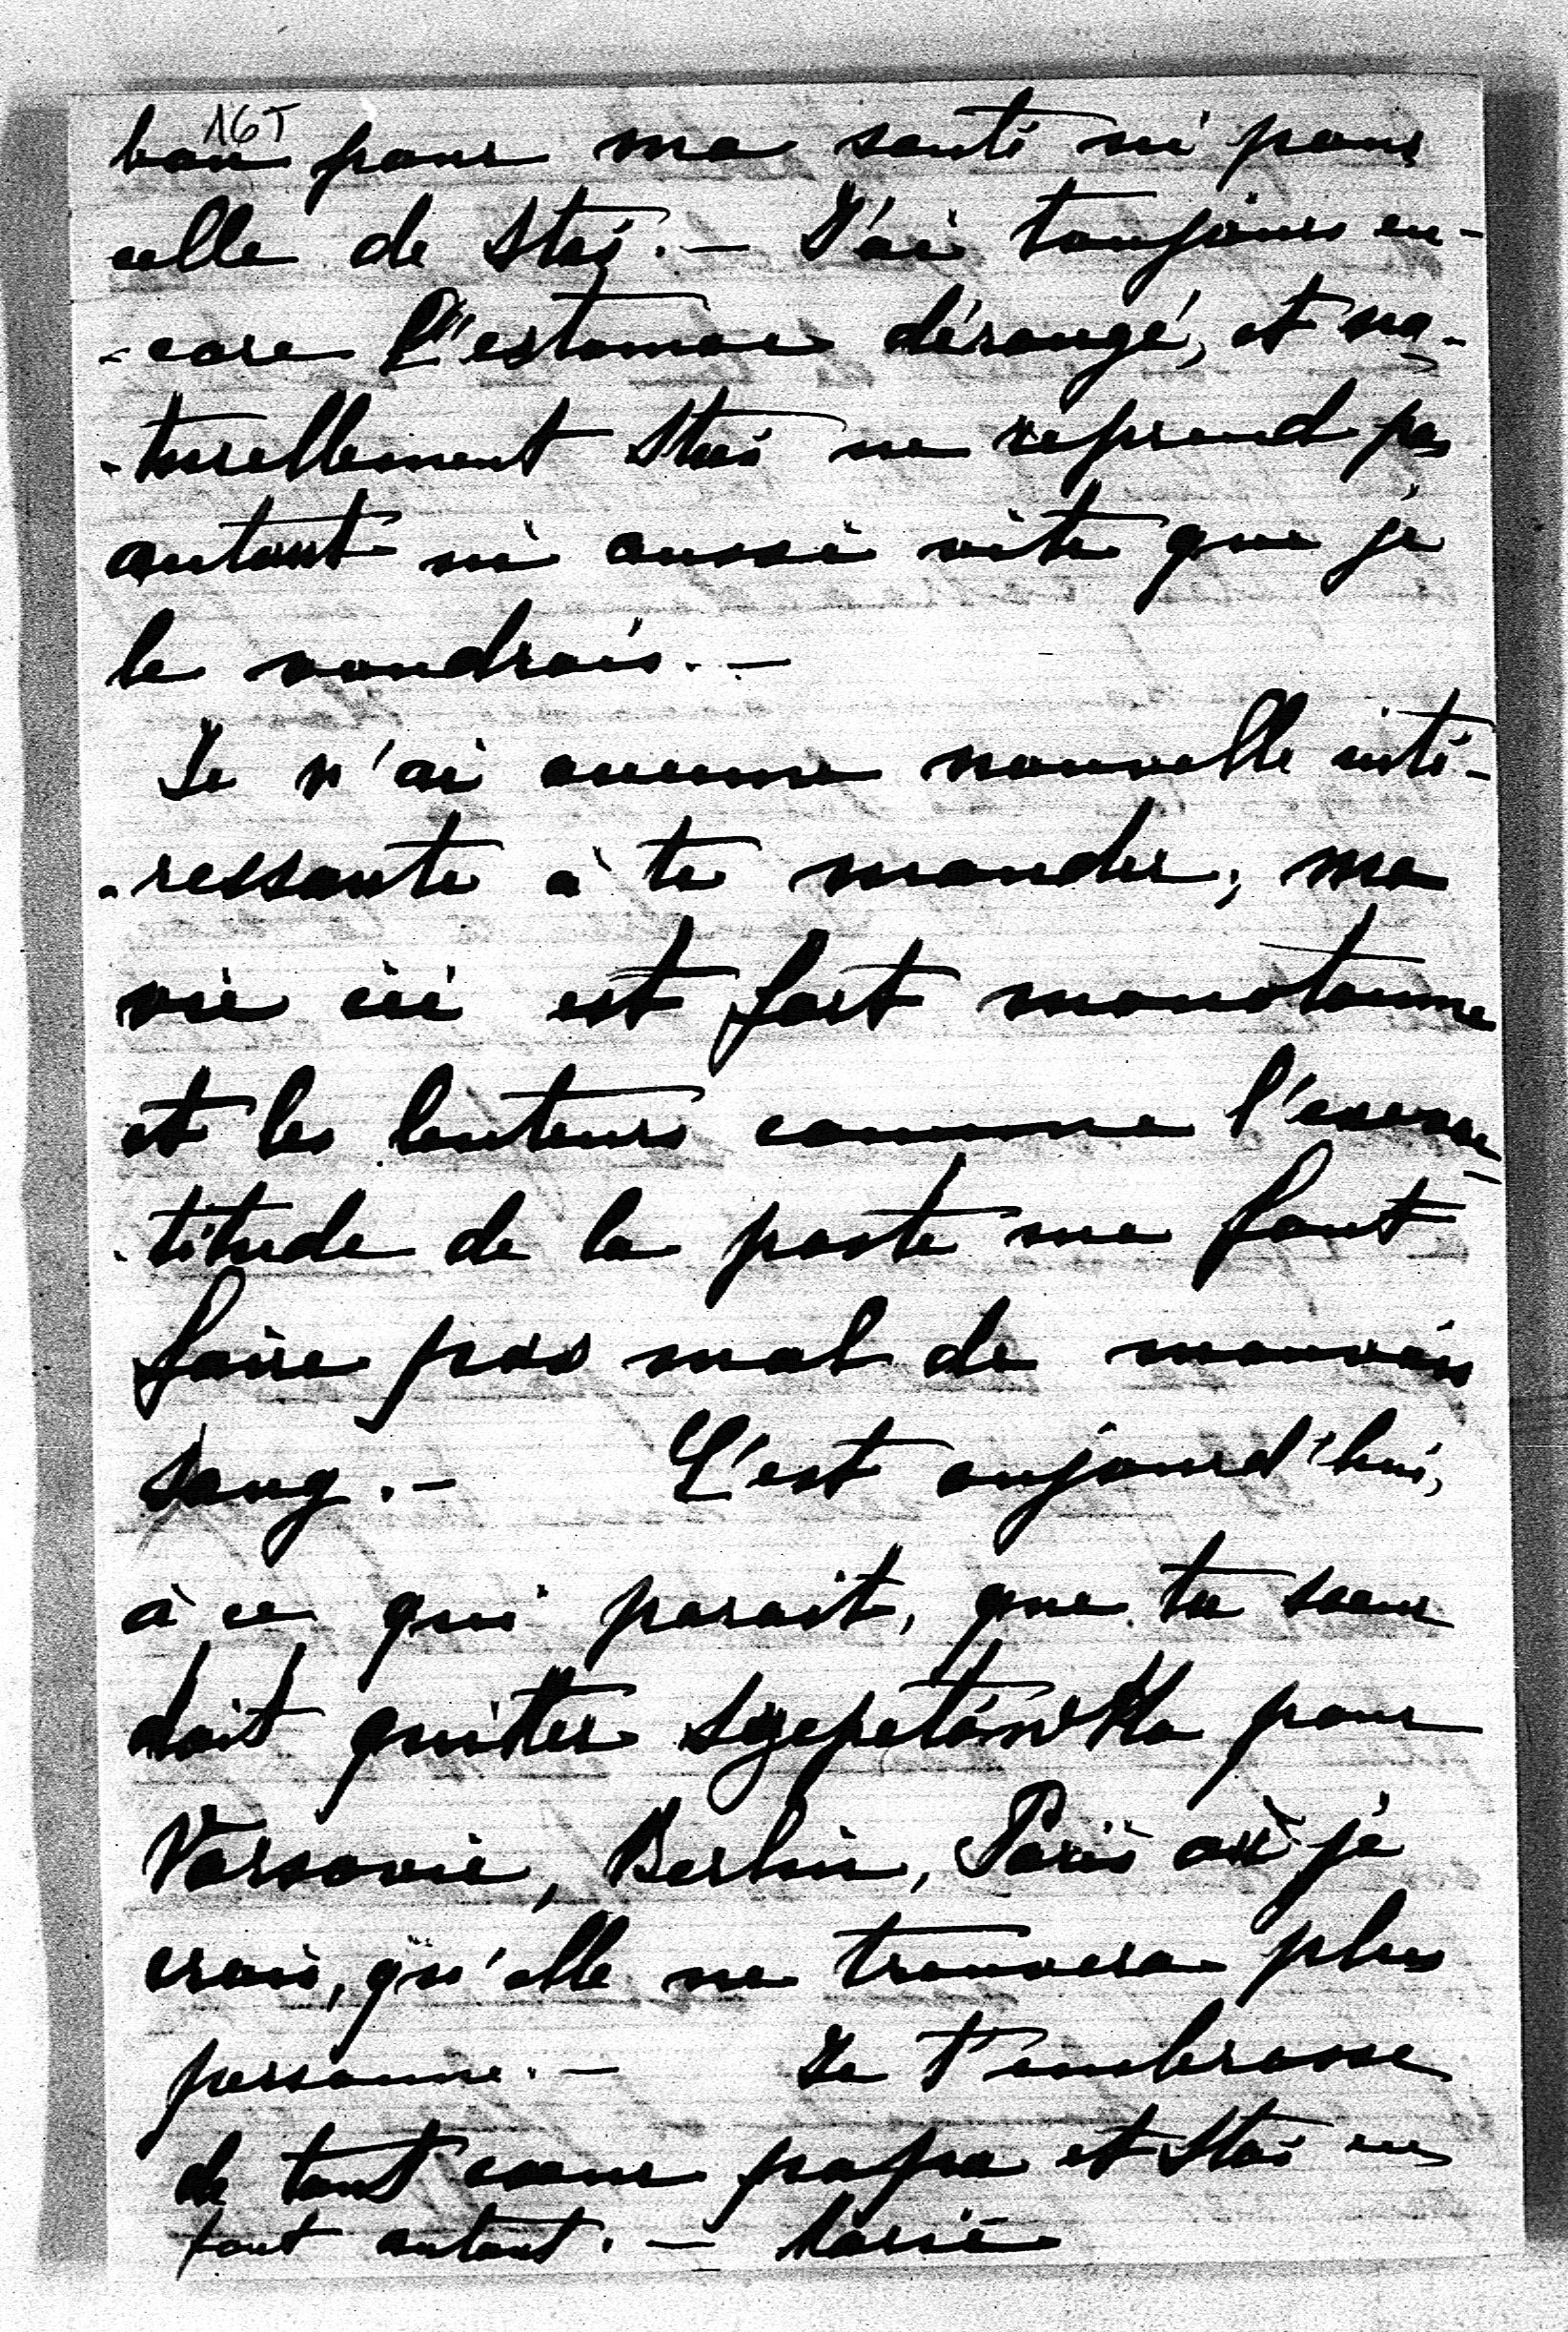 165
bon pour ma santé ni pour
celle de Stas. — J'ai toujours en-
-core l'estomac dérangé, et na-
-turellement Stas ne reprend pas
autant ni aussi vite que je
le voudrais. —
Je n'ai aucune nouvelle inté-
-ressante à te mander; ma
vie ici est fort monotonne
et les lenteurs comme l'exac-
-titude de la poste me font
faire pas mal de mauvais
sang. — C'est aujourd'hui,
à ce qui parait, que ta soeur
doit quitter Szepetówka pour
Varsovie, Berlin, Paris où je
crois, qu'elle ne trouvera plus
personne. — Je t'embrasse
de tout coeur papa et Stas en
font autant. — Marie